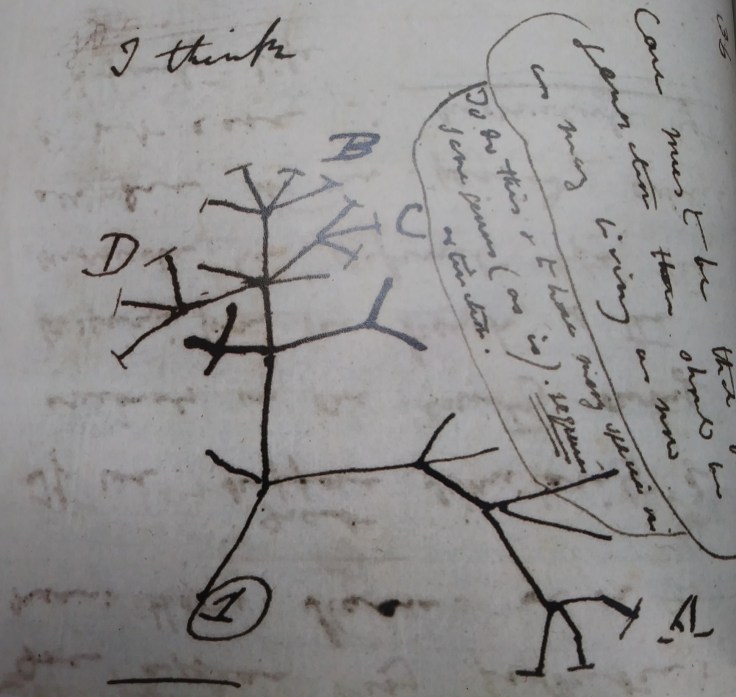 I think
36
Case must be that
generation then should be
as many living as now.
To do this & to have many species in
same genus (as is). requires
extinction.
B
C
D
A
1